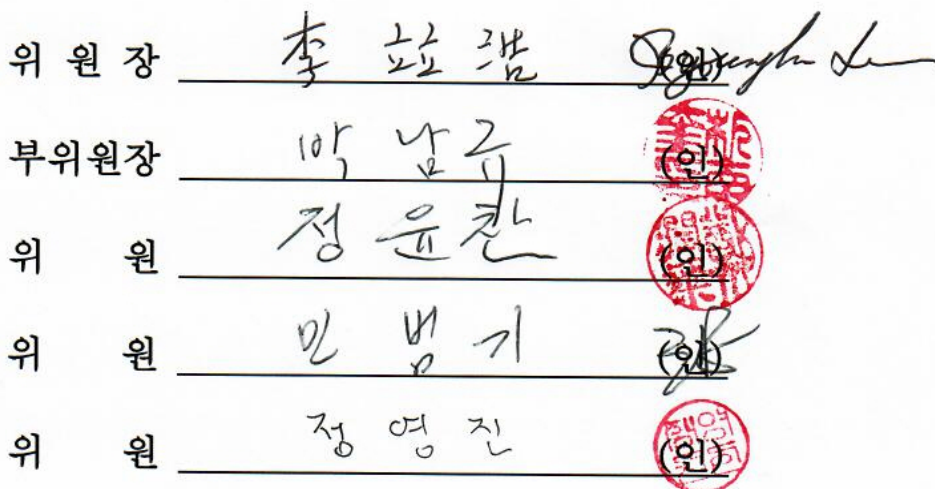 위 원 장 李 (인)
부위원장 박 남 규 (인)
위 원 정 윤 찬 (인)
위 원 민 범 기 (인)
위 원 정 영 진 (인)